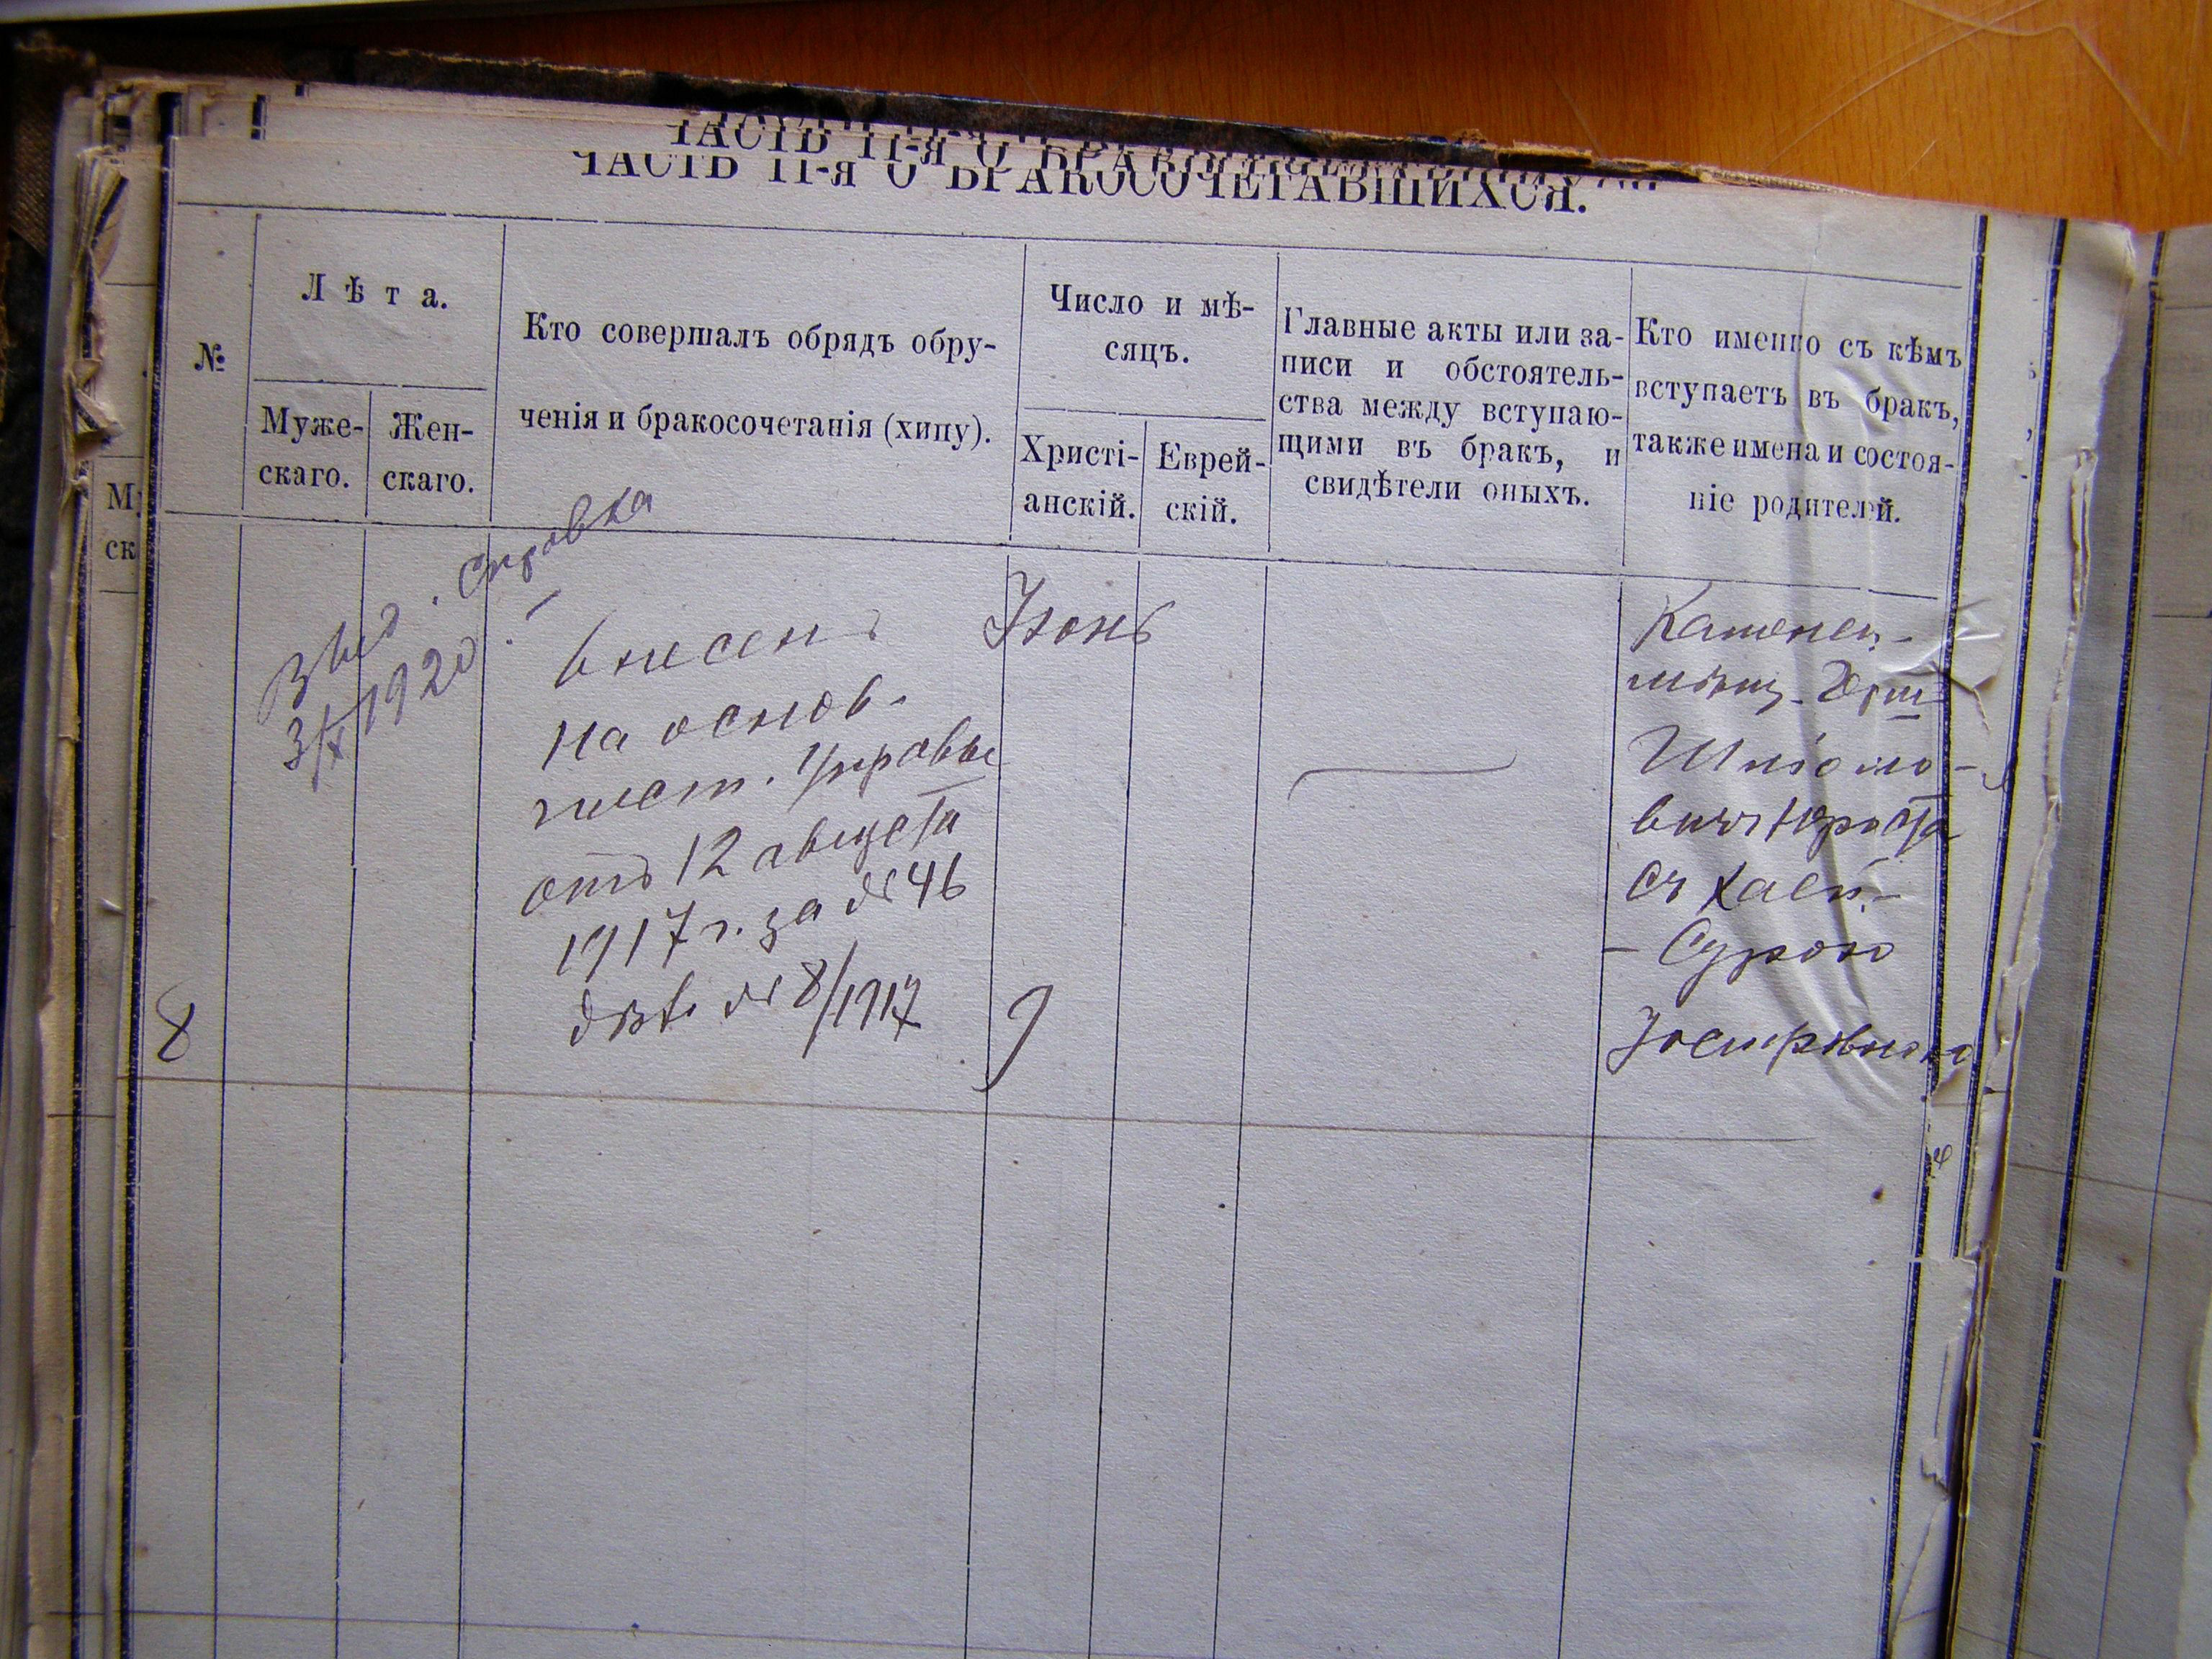 ЧАСТЬ II-я О БРАКОСОЧЕТАВШИХСЯ.
№
Лѣта.
Муже-
скаго.
Жен-
скаго.
Кто совершалъ обрядъ обру-
ченія и бракосочетанія (хипу).
Число и мѣ-
сяцъ.
Христі-
анскій.
Еврей-
скій.
Главные акты или за-
писи и обстоятель-
ства между вступаю-
щими въ бракъ, и
свидѣтели оныхъ.
Кто именно съ кѣмъ
вступаетъ въ бракъ,
также имена и состоя-
ніе родителей.
Справка
3/X 1920
8
внесенъ
на основ.
Управы
отъ 12 августа
1917 г. за № 46
№ 8/1917
Іюнь
Каменец-
мѣщ.
Шлiомо-
вичъ
съ Хаей-
- Сурою